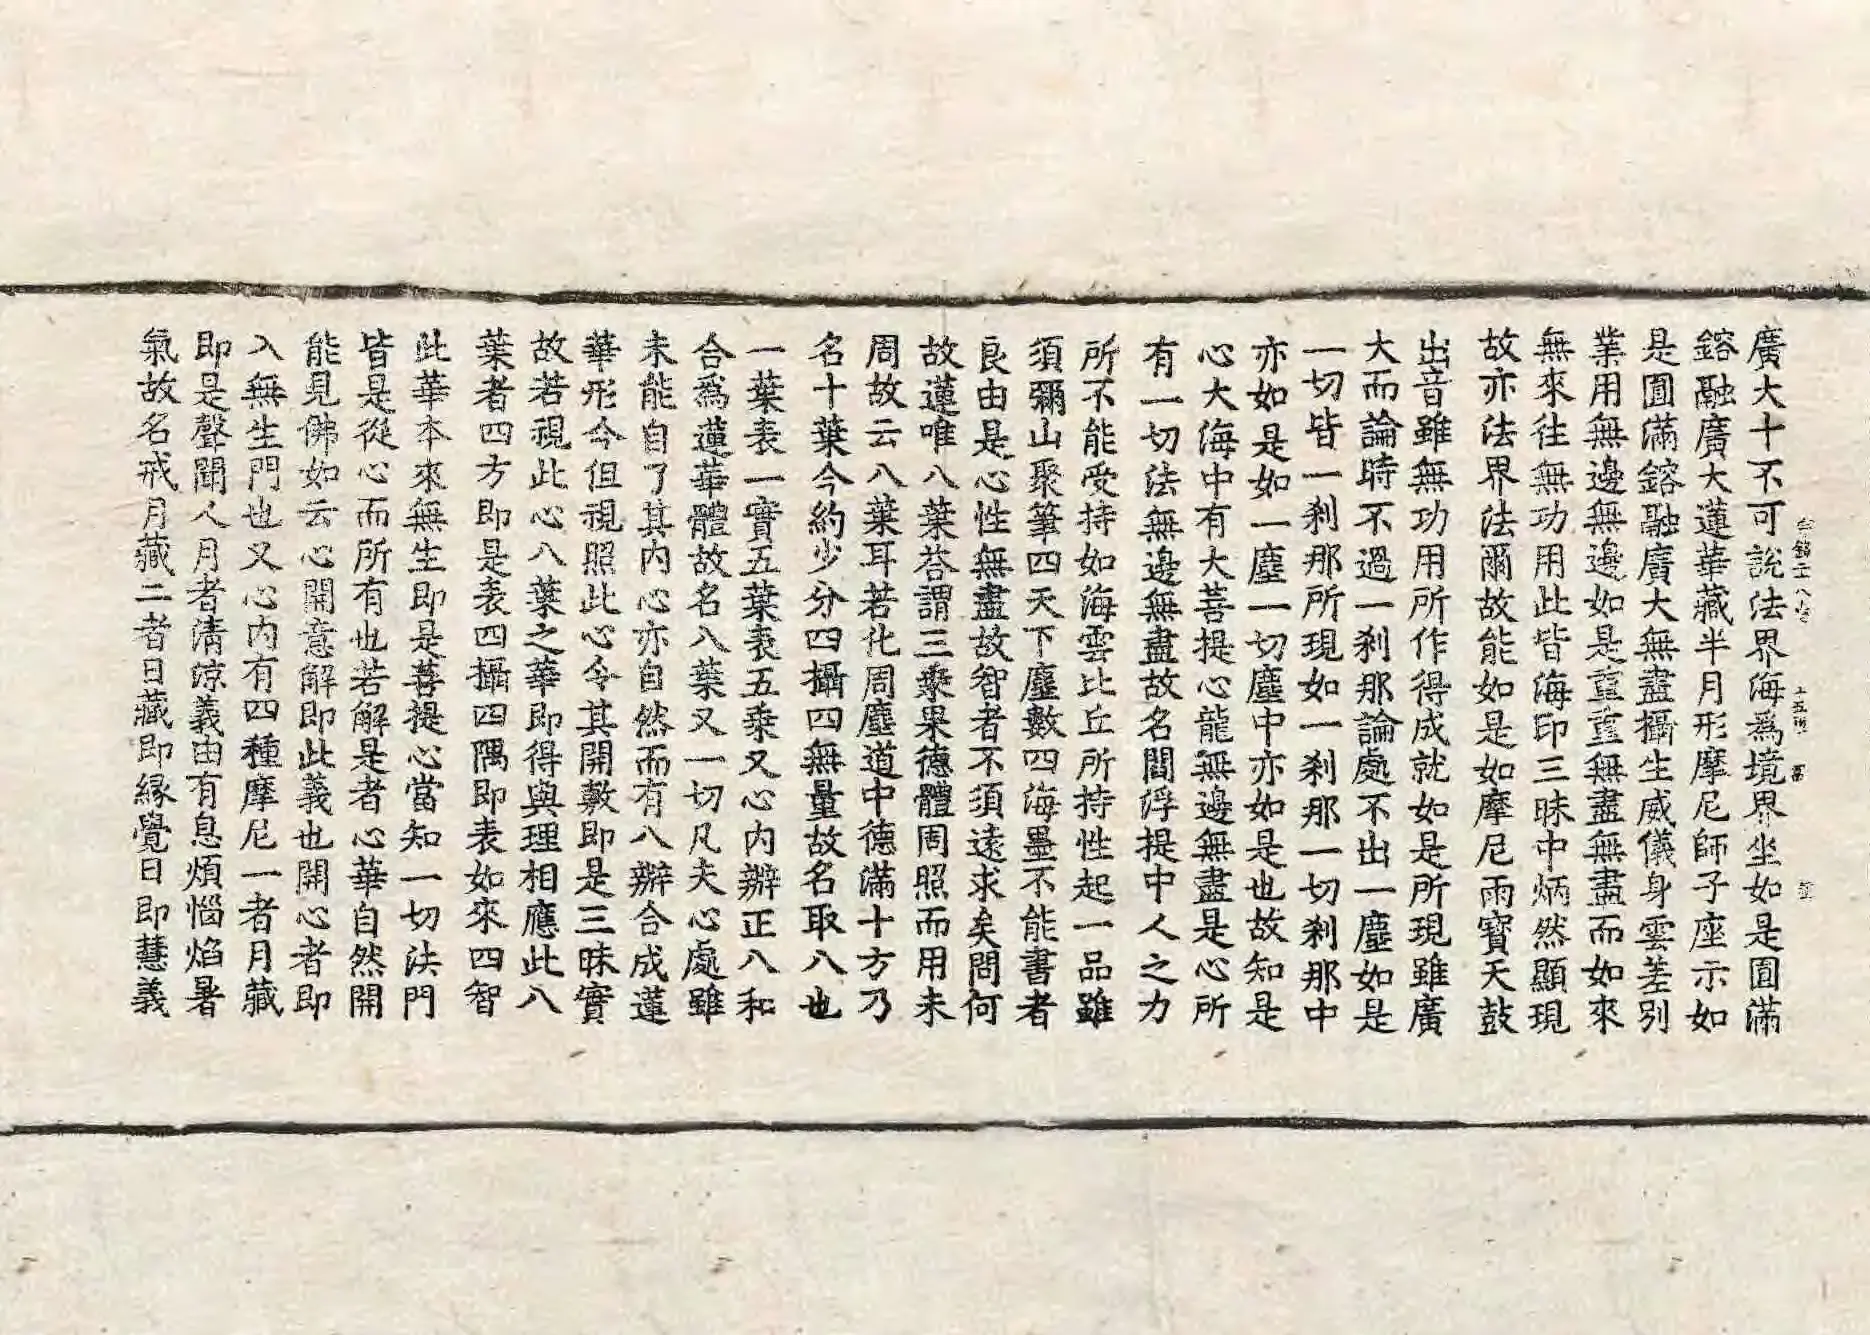 廣大十不可說法界海爲境界坐如是圓滿
鎔融廣大蓮華藏半月形摩尼師子座示如
是圓滿鎔融廣大無盡攝生威儀身雲差別
業用無邊無邊如是重重無盡無盡而如來
無來往無功用此皆海印三昧中炳然顯現
故亦法界法爾故能如是如摩尼雨寳天鼓
出音雖無功用所作得成就如是所現雖廣
大而論時不過一刹那論處不出一塵如是
一切皆一刹那所現如一刹那一切刹那中
亦如是如一塵一切塵中亦如是也故知是
心大海中有大菩提心龍無邊無盡是心所
有一切法無邊無盡故名閻浮提中人之力
所不能受持如海雲比丘所持性起一品雖
須彌山聚筆四天下塵數四海墨不能書者
良由是心性無盡故智者不須遠求矣問何
故蓮唯八葉荅謂三乘果德體周照而用未
周故云八葉耳若化周塵道中德滿十方乃
名十葉今約少分四攝四無量故名取八也
一葉表一實五葉表五乘又心内辦正八和
合爲蓮華體故名八葉又一切凡夫心處雖
未能自了其内心亦自然而有八辦合成蓮
華形今但視照此心令其開敷即是三昧實
故若視此心八葉之華即得與理相應此八
葉者四方即是表四攝四隅即表如來四智
此華本來無生即是菩提心當知一切法門
皆是從心而所有也若解是者心華自然開
能見佛如云心開意解即此義也開心者即
入無生門也又心内有四種摩尼一者月藏
即是聲聞人月者清涼義由有息煩惱焰暑
氣故名戒月藏二者日藏即緣覺日即慧義